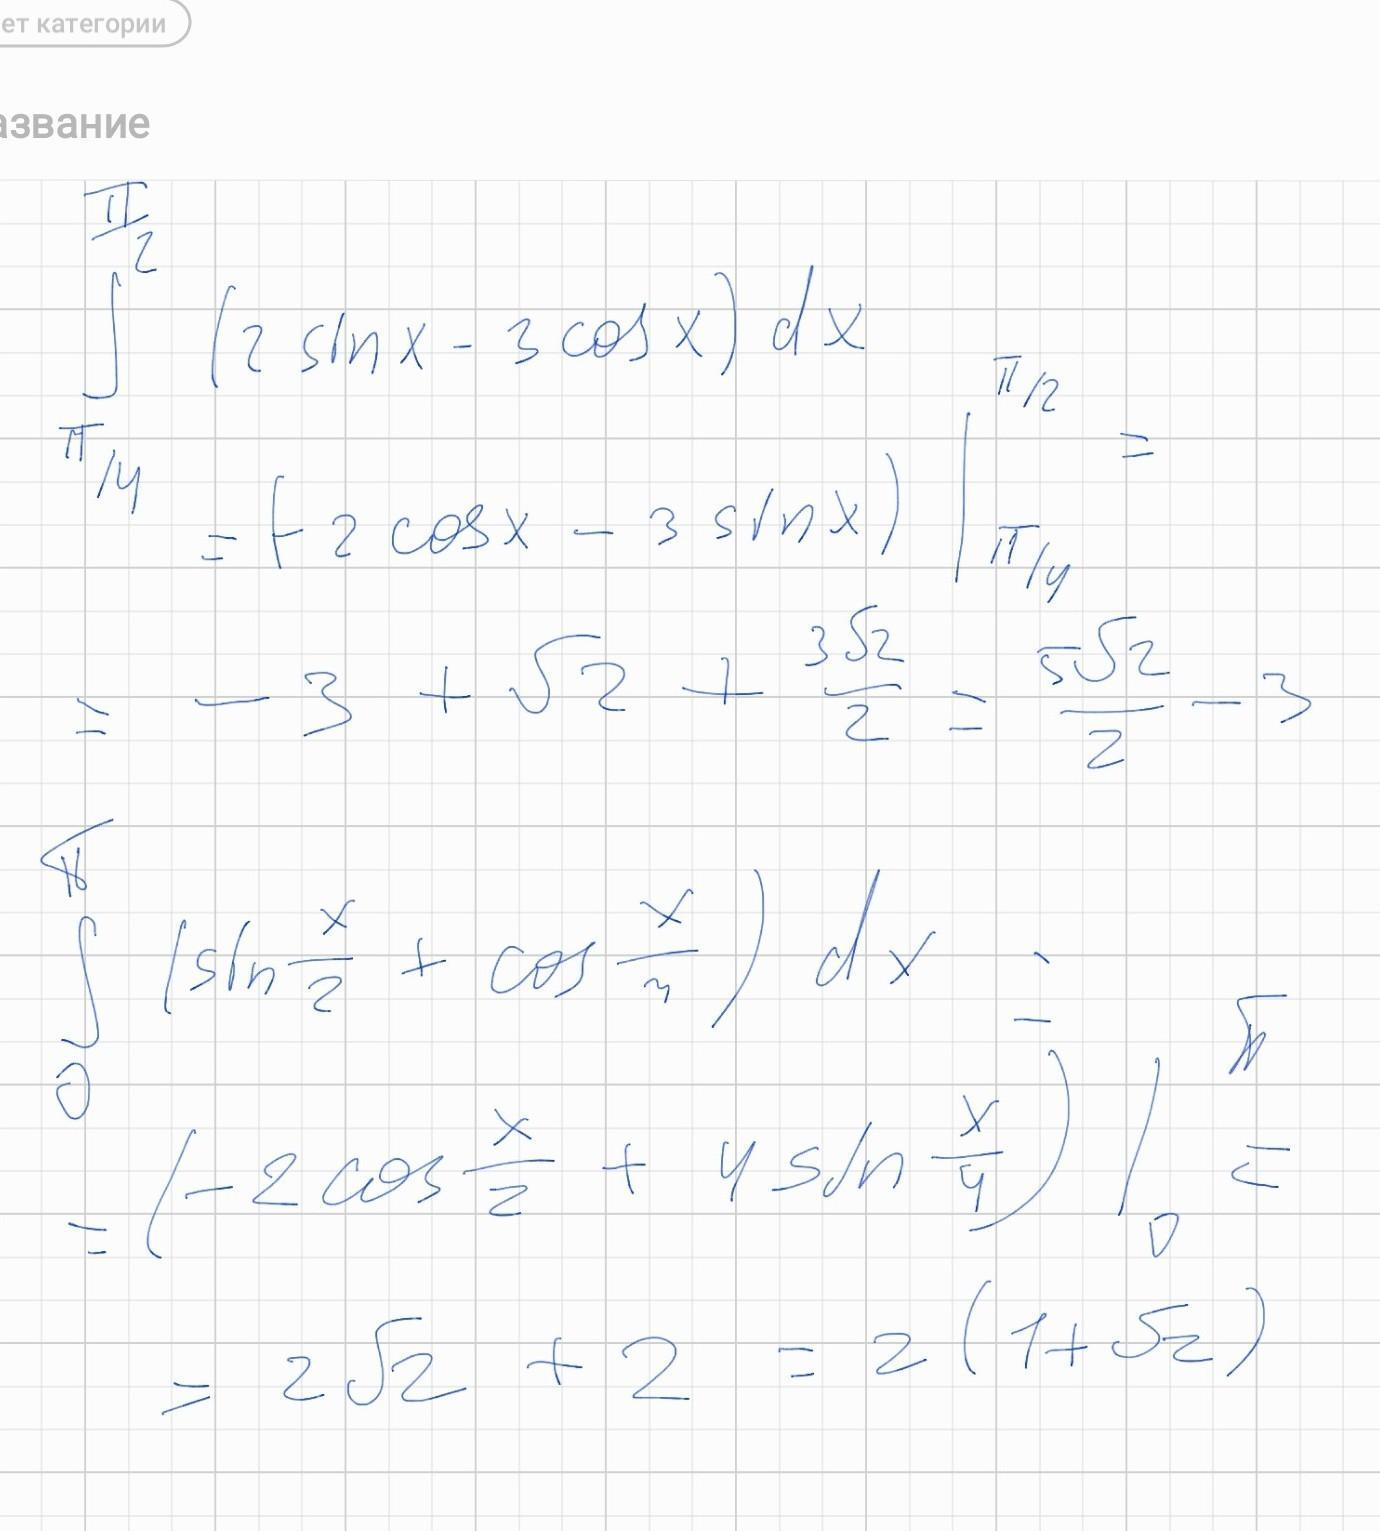 ет категории
азвание
∫_{π/4}^{π/2} (2 sin x - 3 cos x) dx
= (-2 cos x - 3 sin x) |_{π/4}^{π/2} =
= -3 + √2 + 3√2/2 = 5√2/2 - 3
∫_0^π (sin x/2 + cos x/4) dx =
= (-2 cos x/2 + 4 sin x/4) |_0^π =
= 2√2 + 2 = 2(1+√2)